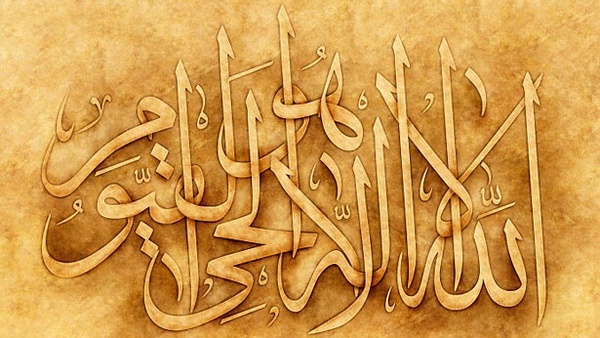 الله لا اله الا هو الحي القيوم